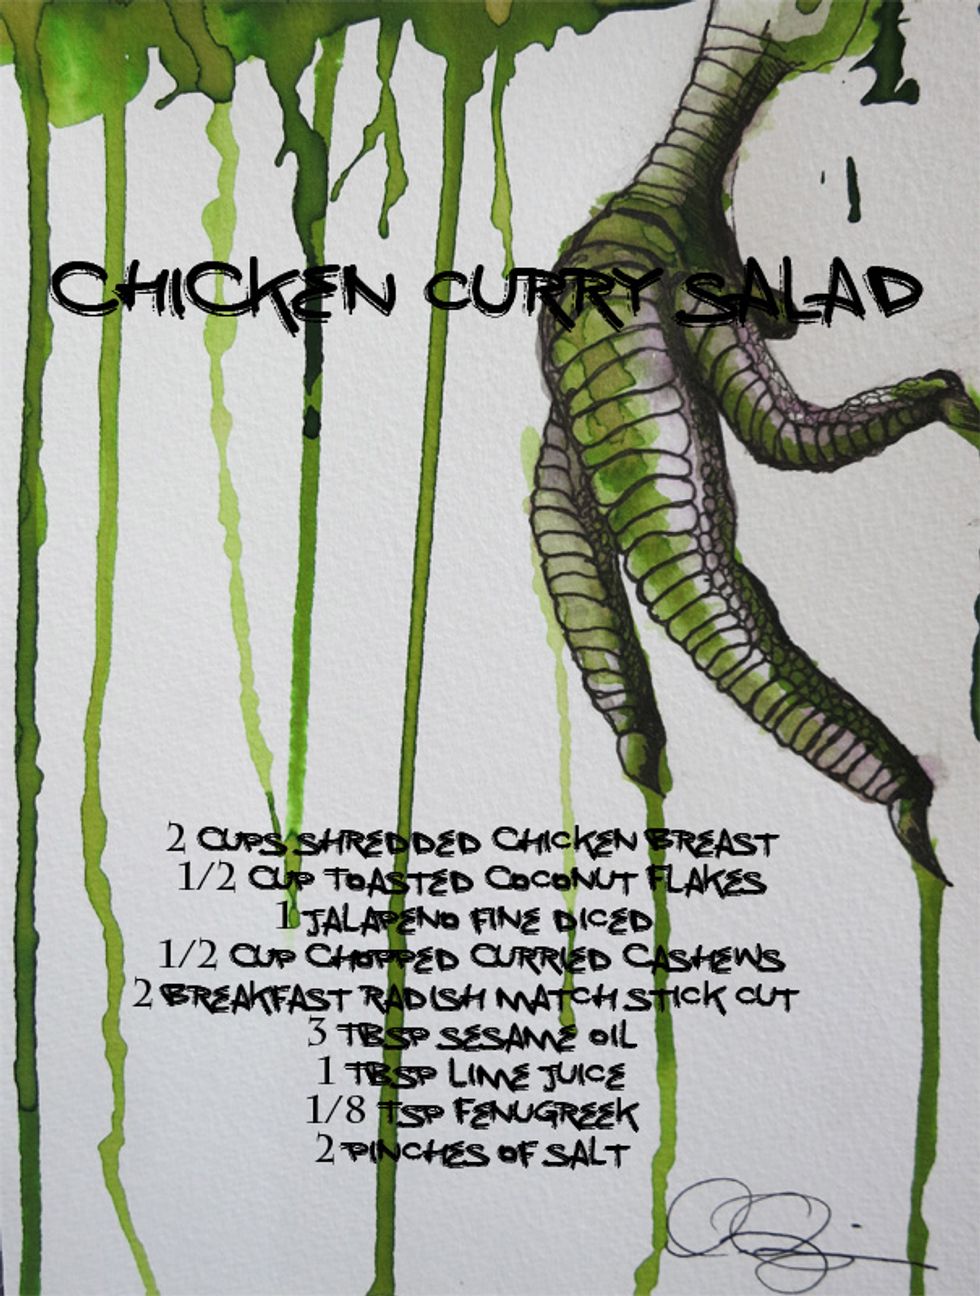 CHICKEN CURRY SALAD
2 CUPS SHREDDED CHICKEN BREAST
1/2 CUP TOASTED COCONUT FLAKES
1 JALAPENO FINE DICED
1/2 CUP CHOPPED CURRIED CASHEWS
2 BREAKFAST RADISH MATCH STICK CUT
3 TBSP SESAME OIL
1 TBSP LIME JUICE
1/8 TSP FENUGREEK
2 PINCHES OF SALT